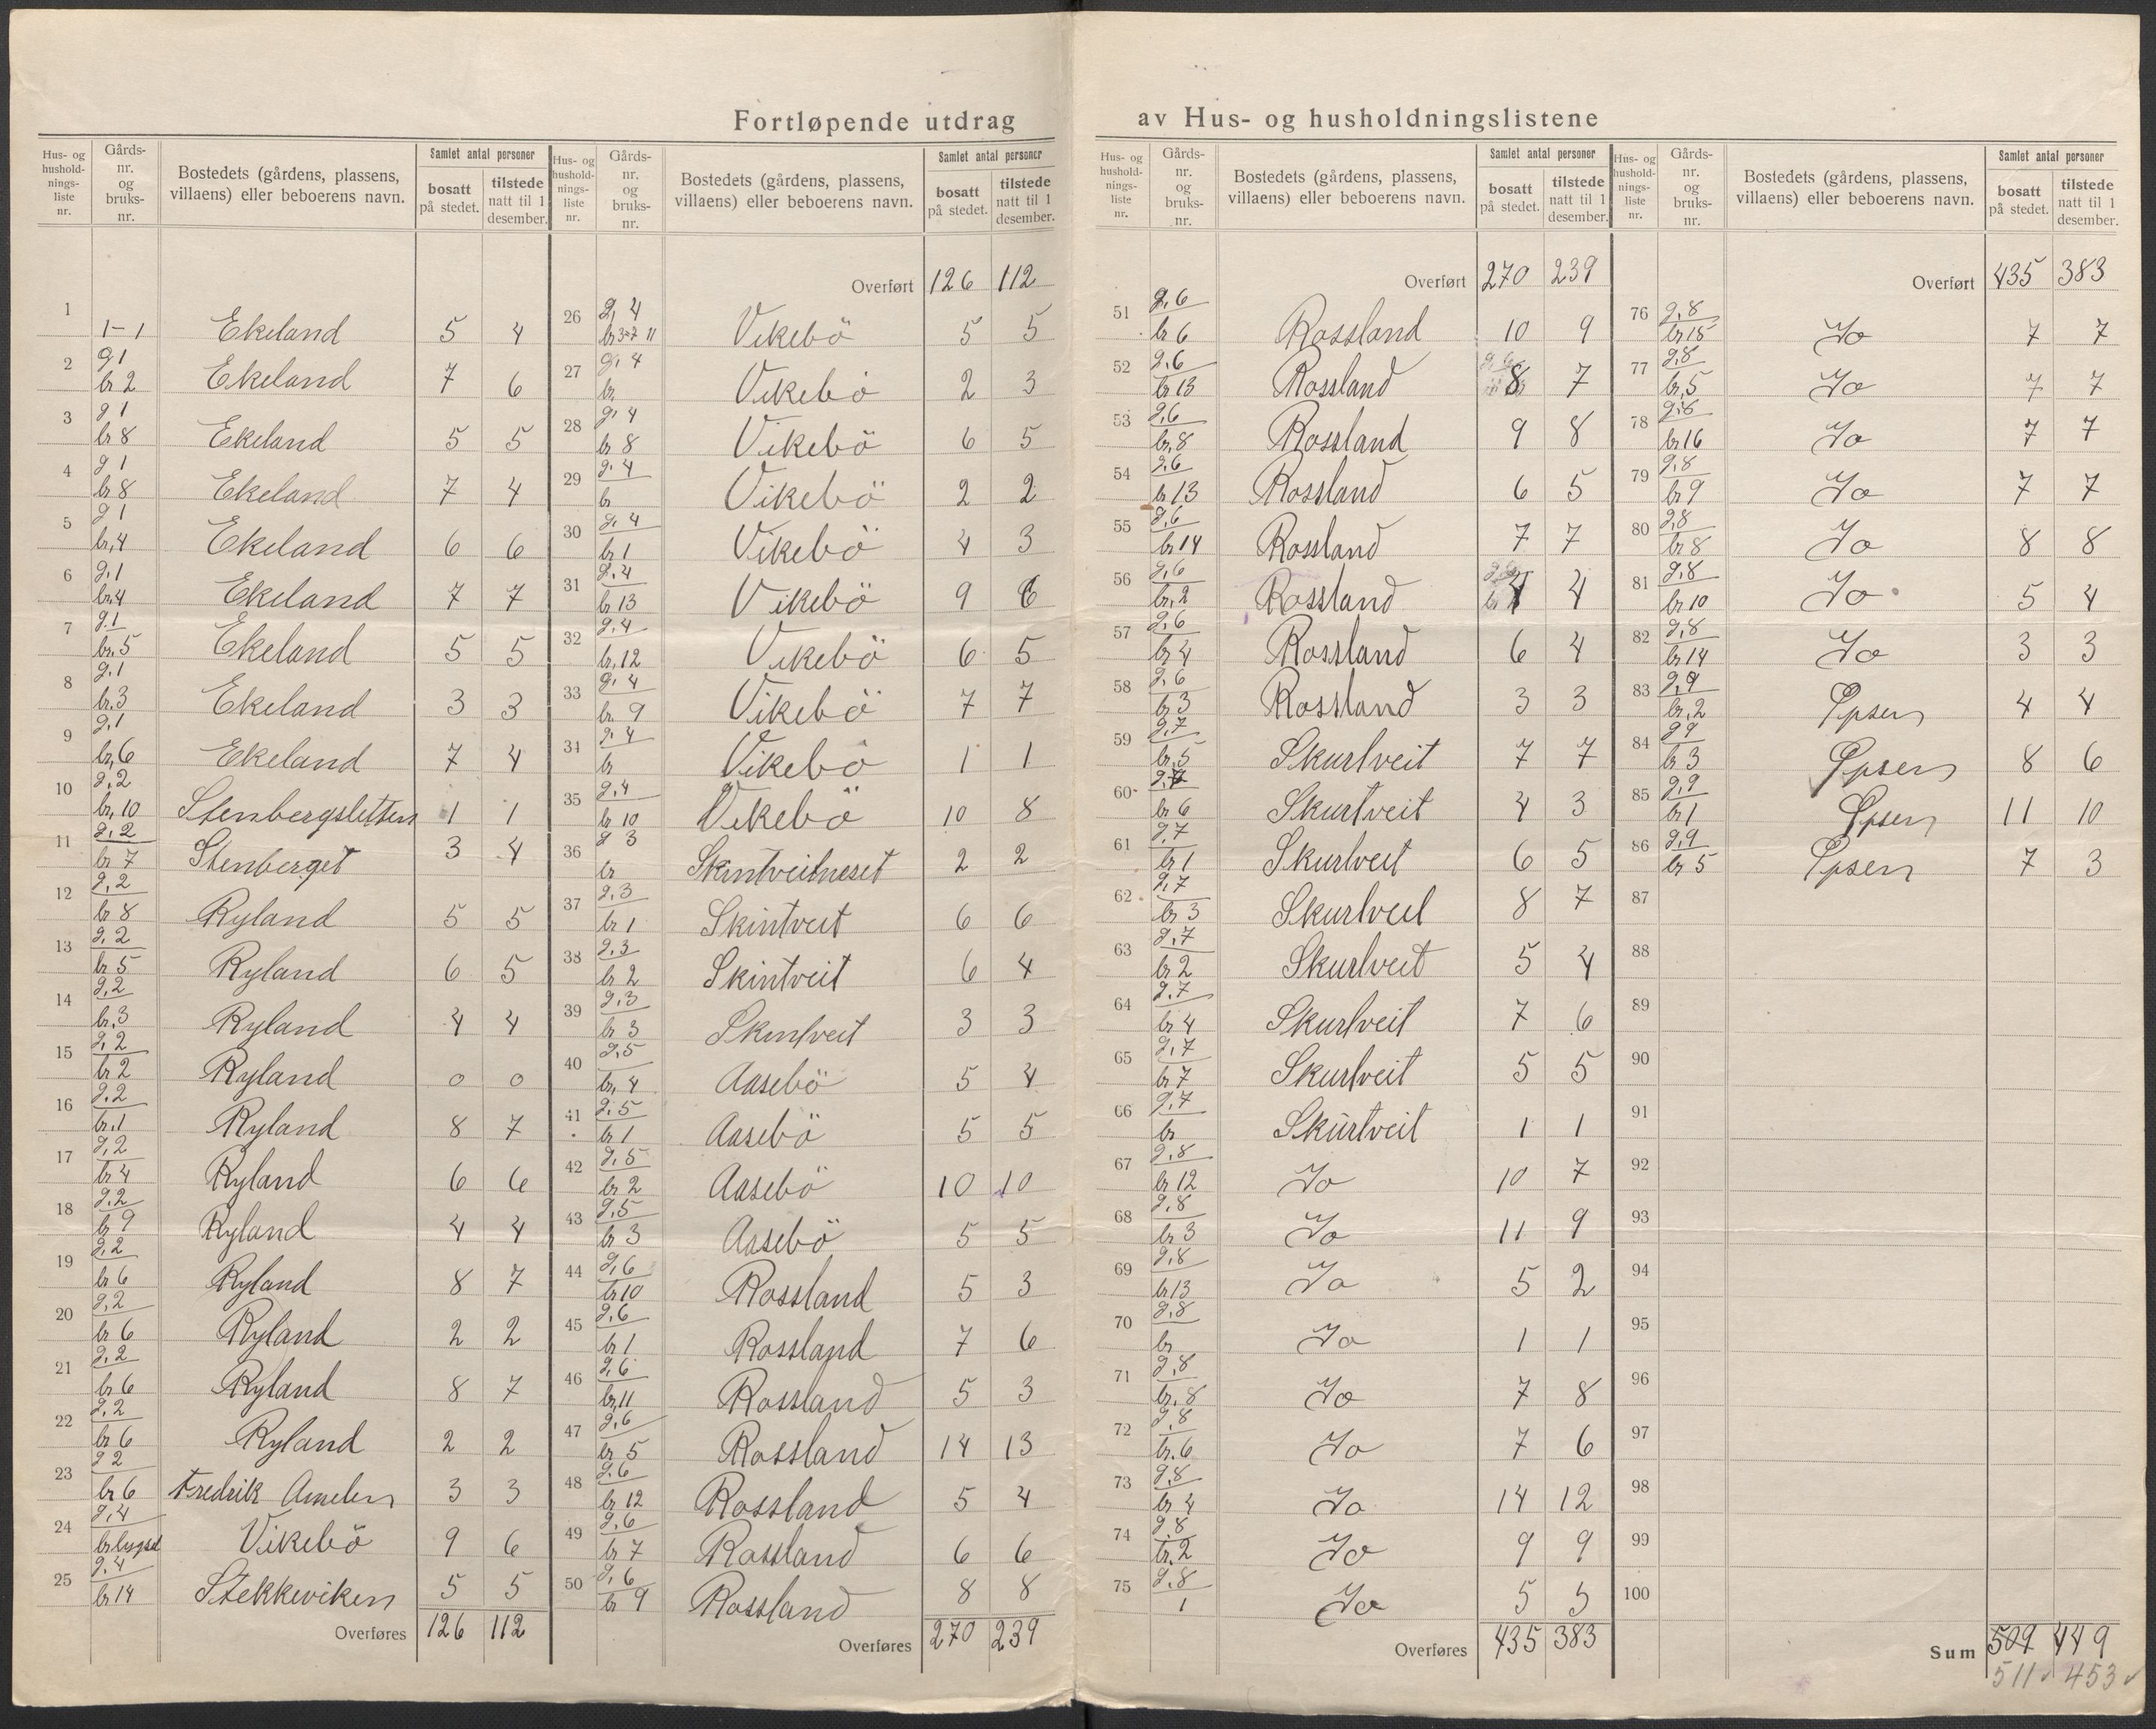 Fortløpende utdrag av Hus- og husholdningslistene
Hus- og hushold- nings- liste nr. | Gårds- nr. og bruks- nr. | Bostedets (gårdens, plassens, villaens) eller beboerens navn. | Samlet antal personer | bosatt på stedet. | tilstede natt til 1 desember.
1 | 1-1 | Ekeland | 5 | 4
2 | g 1 br 2 | Ekeland | 7 | 6
3 | g 1 br 8 | Ekeland | 5 | 5
4 | g 1 br 8 | Ekeland | 7 | 4
5 | g 1 br, 4 | Ekeland | 6 | 6
6 | g. 1 br. 4 | Ekeland | 7 | 7
7 | g. 1 br. 5 | Ekeland | 5 | 5
8 | g. 1 br. 3 | Ekeland | 3 | 3
9 | g. 1 br, 6 | Ekeland | 7 | 4
10 | g. 2 br, 10 | Stenbergsletten | 1 | 1
11 | g. 2 br 7 | Stenberget | 3 | 4
12 | g. 2 br 8 | Ryland | 5 | 5
13 | g. 2 br 5 | Ryland | 6 | 5
14 | g. 2 br. 3 | Ryland | 4 | 4
15 | g. 2 br 2 | Ryland | 0 | 0
16 | g. 2 br. 1 | Ryland | 8 | 7
17 | g. 2 br 4 | Ryland | 6 | 6
18 | g. 2 br 9 | Ryland | 4 | 4
19 | g. 2 br 6 | Ryland | 8 | 7
20 | g. 2 br 6 | Ryland | 2 | 2
21 | g. 2 br 6 | Ryland | 8 | 7
22 | g. 2 br 6 | Ryland | 2 | 2
23 | g 2 br 6 | Fredrik Amelen | 3 | 3
24 | g. 4 br bygsel | Vikebö | 9 | 6
25 | g. 4 br 14 | Stekkeviken | 5 | 5
Overføres | 126 | 112
Hus- og hushold- nings- liste nr. | Gårds- nr. og bruks- nr. | Bostedets (gårdens, plassens, villaens) eller beboerens navn. | Samlet antal personer | bosatt på stedet. | tilstede natt til 1 desember.
Overført | 126 | 112
26 | g. 4 br 3-7 11 | Vikebö | 5 | 5
27 | g. 4 br, | Vikebö | 2 | 3
28 | g. 4 br 8 | Vikebö | 6 | 5
29 | g. 4 br | Vikebö | 2 | 2
30 | g. 4 br 1 | Vikebö | 4 | 3
31 | g. 4 br 13 | Vikebö | 9 | 6
32 | g. 4 br, 12 | Vikebö | 6 | 5
33 | g. 4 br. 9 | Vikebö | 7 | 7
34 | g. 4 br | Vikebö | 1 | 1
35 | g. 4 br 10 | Vikebö | 10 | 8
36 | g 3 br | Skintveitneset | 2 | 2
37 | g. 3 br 1 | Skintveit | 6 | 6
38 | g. 3 br 2 | Skintveit | 6 | 4
39 | g. 3 br 3 | Skintveit | 3 | 3
40 | g. 5 br, 4 | Aasebö | 5 | 4
41 | g. 5 br 1 | Aasebö | 5 | 5
42 | g. 5 br 2 | Aasebö | 10 | 10
43 | g. 5 br 3 | Aasebö | 5 | 5
44 | g. 6 br 10 | Rossland | 5 | 3
45 | g. 6 br 1 | Rossland | 7 | 6
46 | g. 6 br, 11 | Rossland | 5 | 3
47 | g. 6 br 5 | Rossland | 14 | 13
48 | g. 6 br 12 | Rossland | 5 | 4
49 | g. 6 br 7 | Rossland | 6 | 6
50 | g. 6 br 9 | Rossland | 8 | 8
Overføres | 270 | 239
Hus- og hushold- nings- liste nr. | Gårds- nr. og bruks- nr. | Bostedets (gårdens, plassens, villaens) eller beboerens navn. | Samlet antal personer | bosatt på stedet. | tilstede natt til 1 desember.
Overført | 270 | 239
51 | g. 6 br 6 | Rossland | 10 | 9
52 | g. 6 br 13 | Rossland | 8 | 7
53 | g. 6 br, 8 | Rossland | 9 | 8
54 | g. 6 br 13 | Rossland | 6 | 5
55 | g. 6 br 14 | Rossland | 7 | 7
56 | g. 6 br, 2 | Rossland | 4 | 4
57 | g. 6 br 4 | Rossland | 6 | 4
58 | g. 6 br 3 | Rossland | 3 | 3
59 | g. 7 br, 5 | Skurtveit | 7 | 7
60 | g. 7 br 6 | Skurtveit | 4 | 3
61 | g. 7 br 1 | Skurtveit | 6 | 5
62 | g. 7 br 3 | Skurtveit | 8 | 7
63 | g. 7 br 2 | Skurtveit | 5 | 4
64 | g. 7 br 4 | Skurtveit | 7 | 6
65 | g. 7 br 7 | Skurtveit | 5 | 5
66 | g. 7 br | Skurtveit | 1 | 1
67 | g. 8 br 12 | Jo | 10 | 7
68 | g. 8 br 3 | Jo | 11 | 9
69 | g. 8 br 13 | Jo | 5 | 2
70 | g. 8 br | Jo | 1 | 1
71 | g. 8 br, 8 | Jo | 7 | 8
72 | g. 8 br. 6 | Jo | 7 | 6
73 | g. 8 br 4 | Jo | 14 | 12
74 | g. 8 br. 2 | Jo | 9 | 9
75 | g. 8 1 | Jo | 5 | 5
Overføres | 435 | 383
Hus- og hushold- nings- liste nr. | Gårds- nr. og bruks- nr. | Bostedets (gårdens, plassens, villaens) eller beboerens navn. | Samlet antal personer | bosatt på stedet. | tilstede natt til 1 desember.
Overført | 435 | 383
76 | g. 8 br 15 | Jo | 7 | 7
77 | g. 8 br, 5 | Jo | 7 | 7
78 | g. 8 br 16 | Jo | 7 | 7
79 | g. 8 br 9 | Jo | 7 | 7
80 | g. 8 br 8 | Jo | 8 | 8
81 | g. 8 br 10 | Jo | 5 | 4
82 | g. 8 br 14 | Jo | 3 | 3
83 | g. 9 br, 2 | Ypsen | 4 | 4
84 | g 9 br 3 | Ypsen | 8 | 6
85 | g. 9 br 1 | Ypsen | 11 | 10
86 | g. 9 br 5 | Ypsen | 7 | 3
87
88
89
90
91
92
93
94
95
96
97
98
99
100
Sum | 509 | 449
511 ✓ 453 ✓